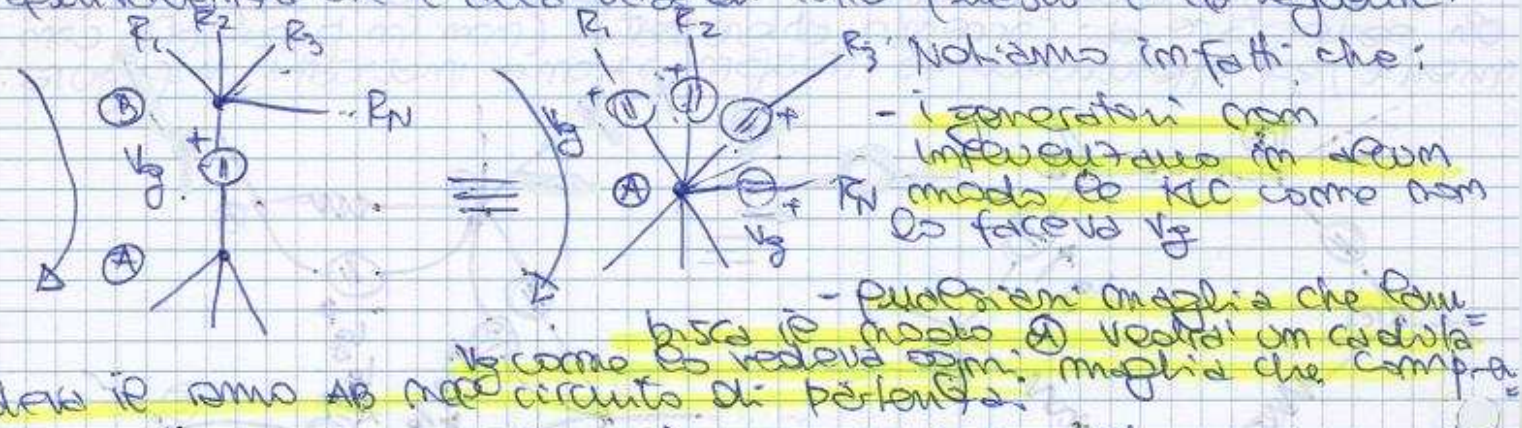 R1 R2 R3
B
RN
+
Vg
A
R1 R2
R3
+ + +
Vg
A
RN
+
Vg
Notiamo infatti che:
- i generatori non
influenzano in alcun
modo le KLC come non
lo faceva Vg
- qualsiasi maglia che lam=
bisca il nodo A vedrà un caduta
Vg come lo vedeva ogni maglia che compren=
deva il ramo AB nel circuito di partenza.